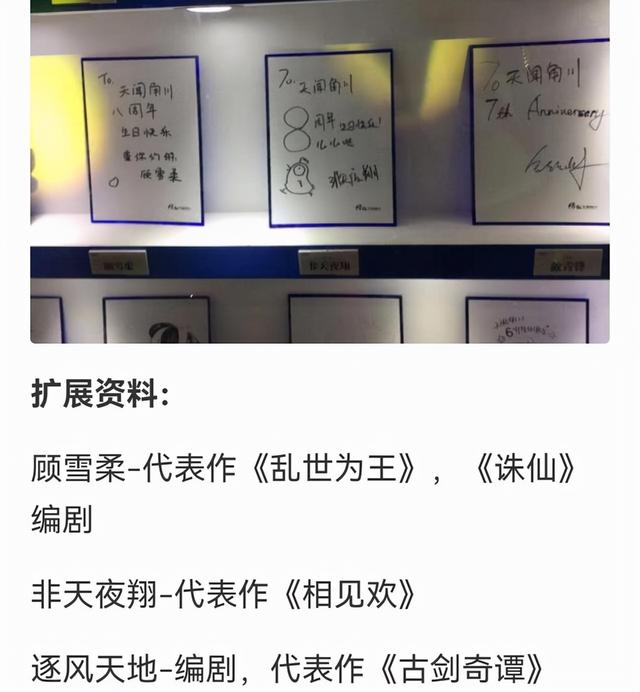 To.
天闻角川
八周年
生日快乐
顾雪柔
To.
天闻角川
8周年生日快乐!
么么哒
非天夜翔
To 天闻角川
7th Anniversary
顾雪柔
非天夜翔
6周年
扩展资料:
顾雪柔-代表作《乱世为王》,《诛仙》
编剧
非天夜翔-代表作《相见欢》
逐风天地-编剧,代表作《古剑奇谭》